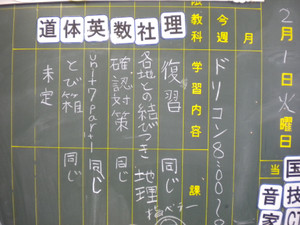 2月1日火
ドリコン8:00〜8
今週 月
教科 学習内容 課
理 復習 同じ
社 各地との結びつき 地理
数 確認対策 同じ
英 unit7part1 同じ
体 とび箱 同じ
道 未定
当
国
技
音
家